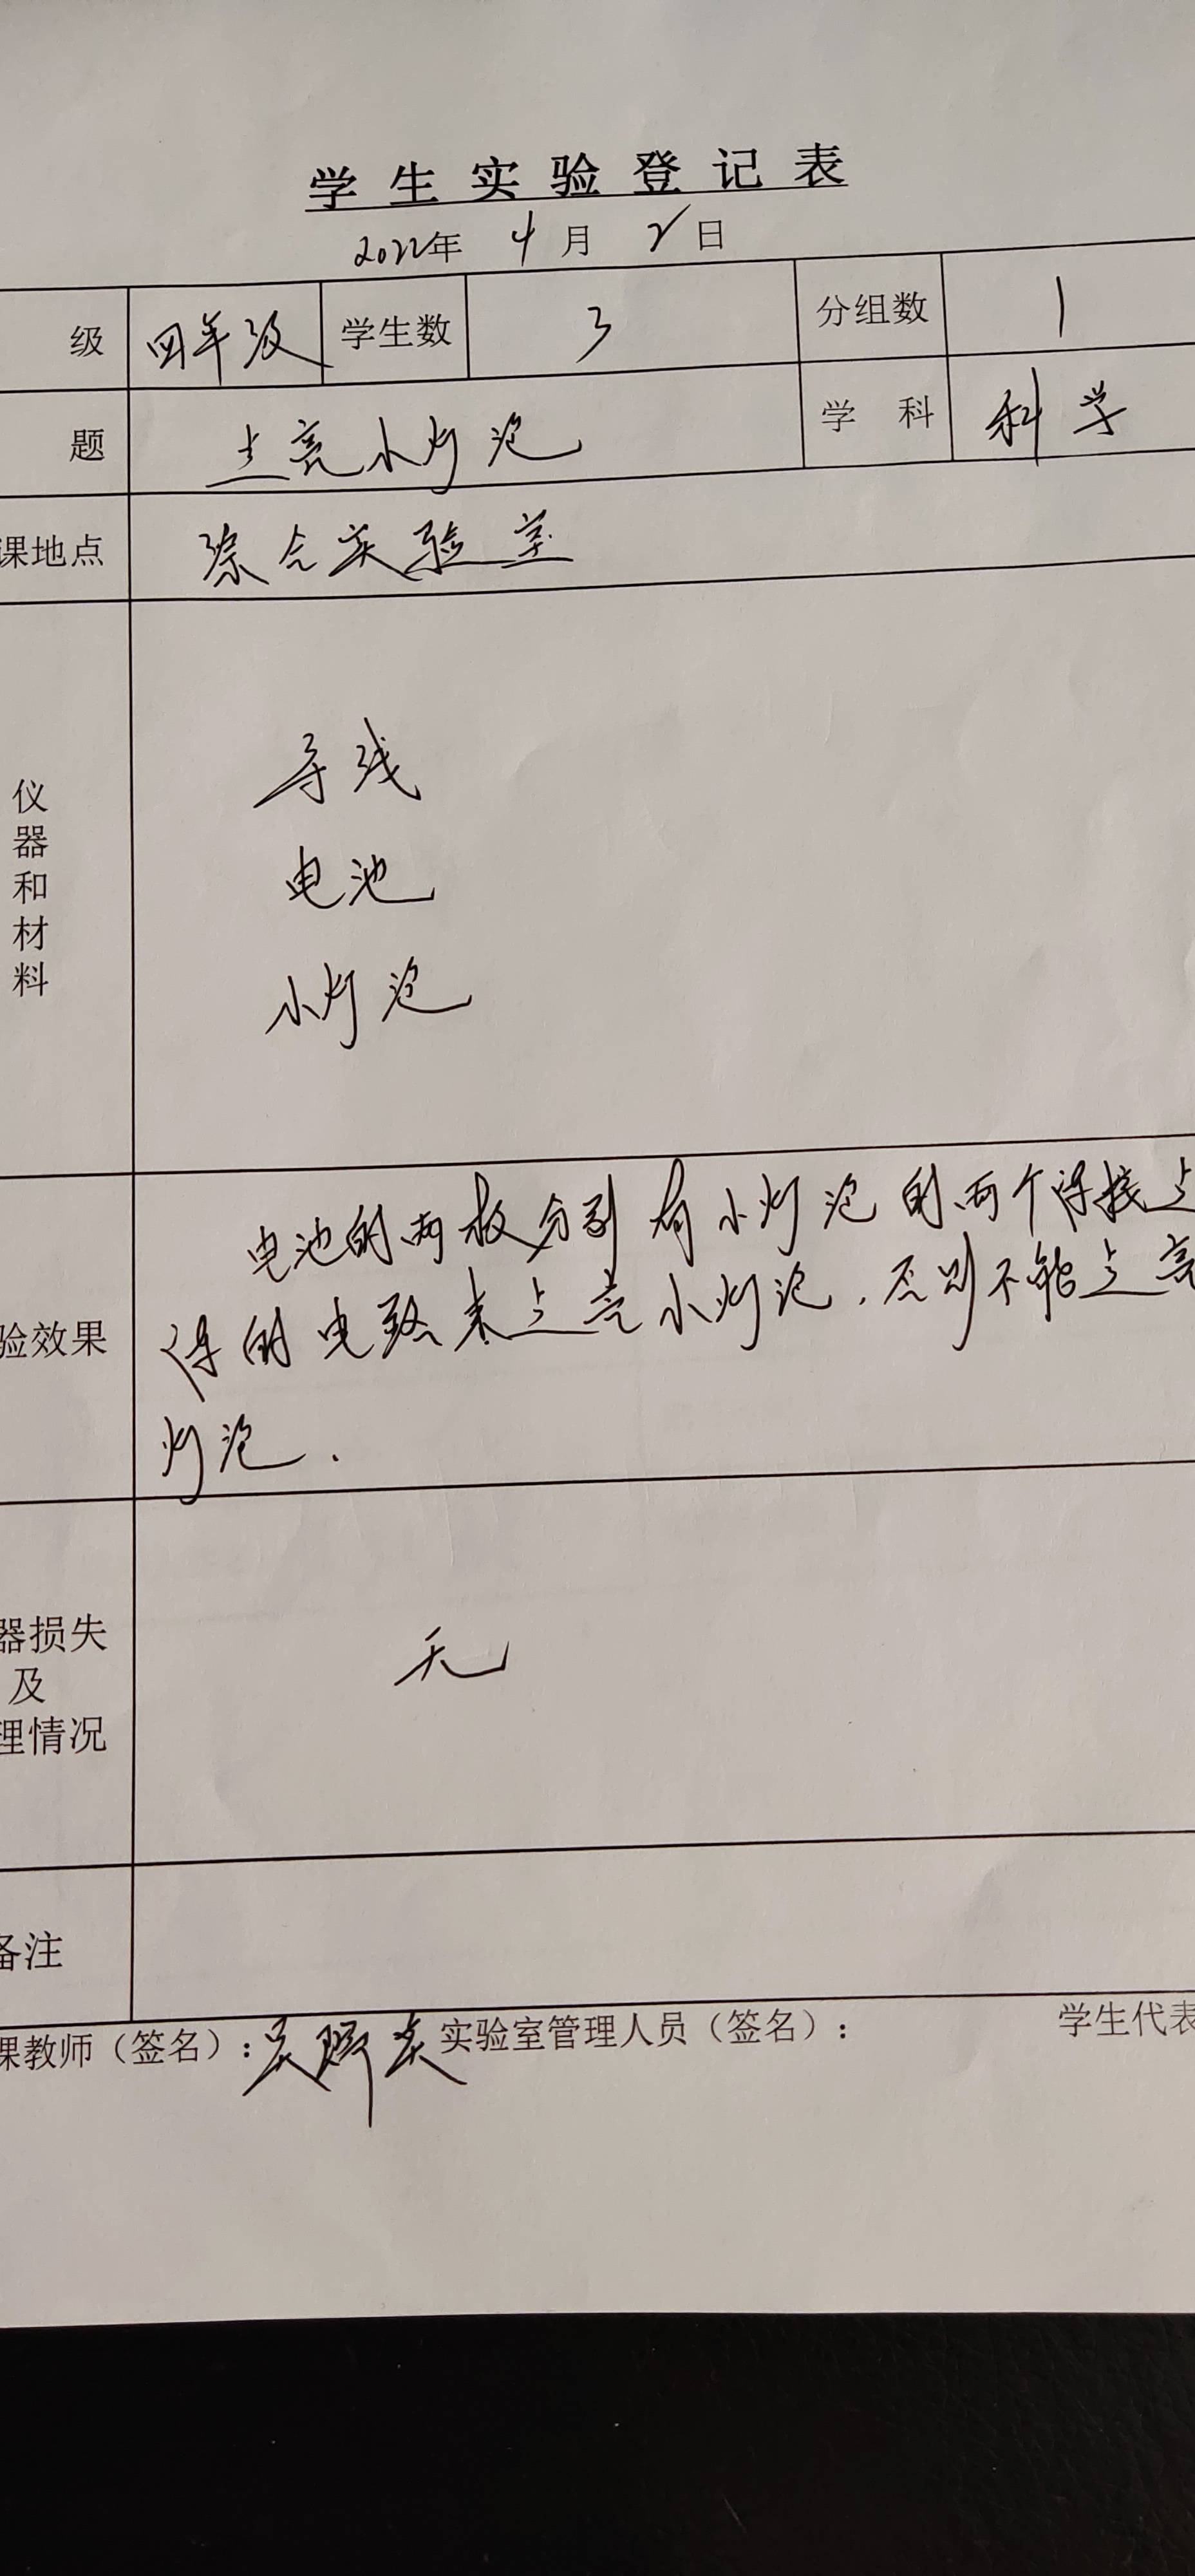 学生实验登记表
2022年 4月 2日
级 四年级 学生数 3 分组数 1
题 点亮小灯泡 学科 科学
课地点 综合实验室
仪器和材料
导线
电池
小灯泡
验效果
电池的两极分别有小灯泡的两个连接点
的电路来点亮小灯泡.否则不能点亮
灯泡.
器损失
及
理情况
无
备注
课教师（签名）: 实验室管理人员（签名）: 学生代表